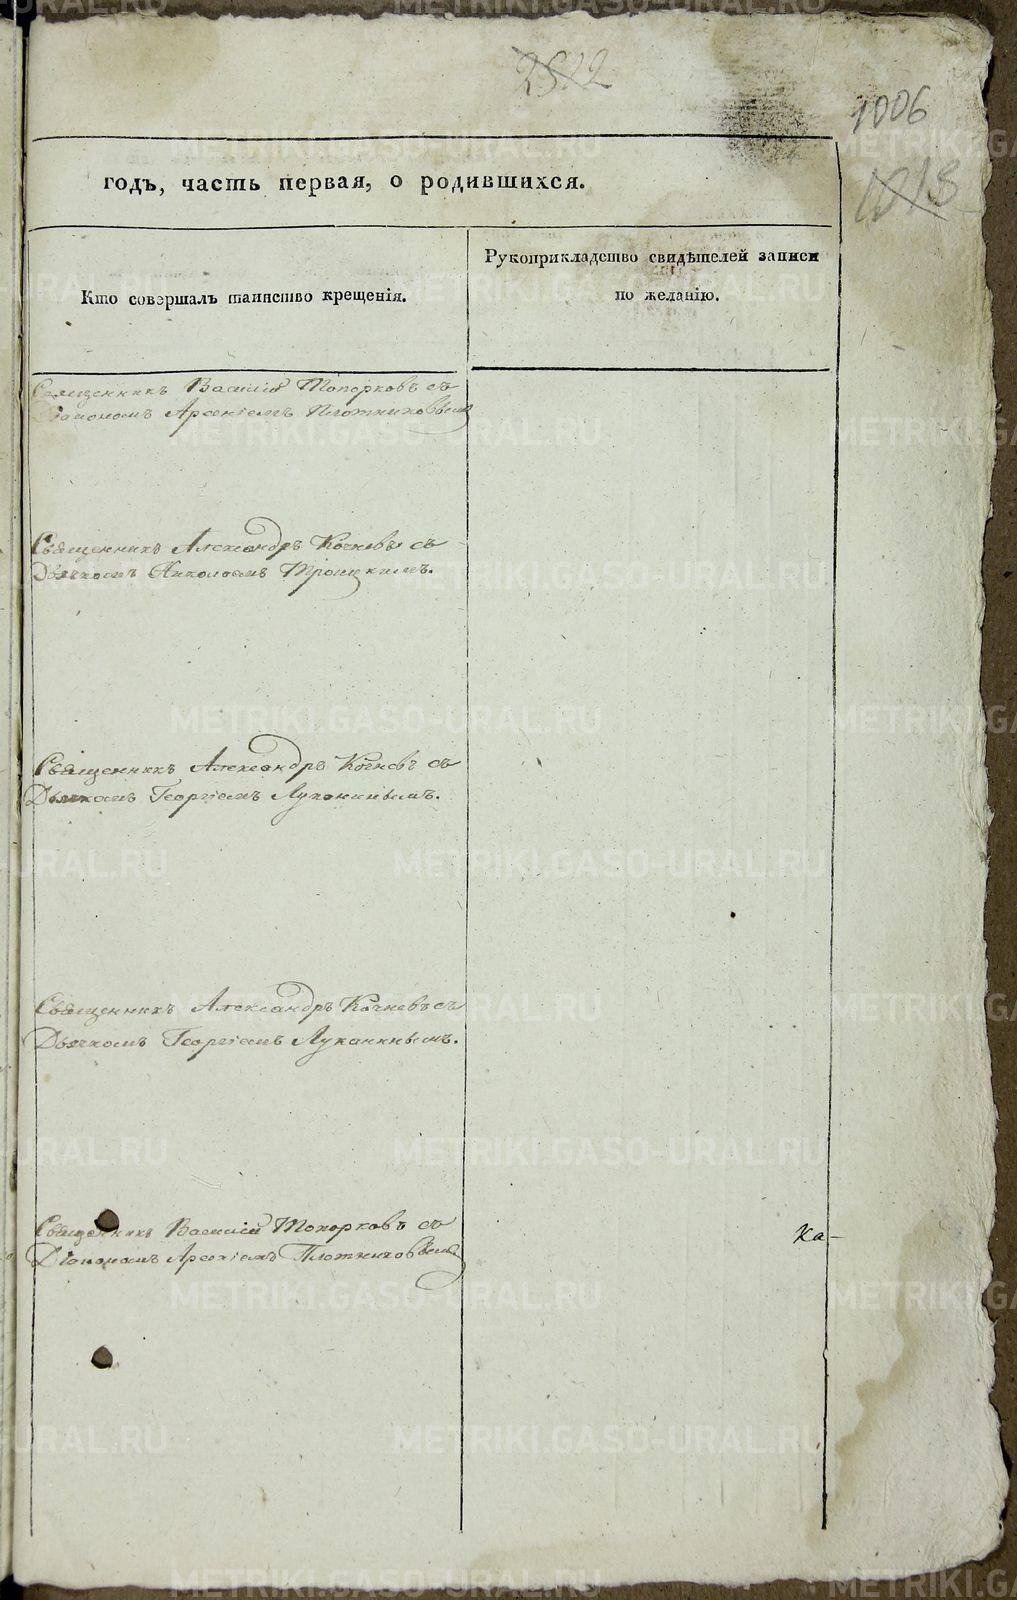 2822
1006
1013
годъ, часть первая, о родившихся.
Кто совершалъ таинство крещенія.
Рукоприкладство свидѣтелей записи
по желанію.
Священникъ Василій Топорковъ съ
Діакономъ Арсеніемъ Плотниковымъ
Священникъ Александръ Кочневъ съ
Дьячкомъ Николаемъ Троицкимъ.
Священникъ Александръ Кочневъ съ
Дьячкомъ Георгіемъ Луканинымъ.
Священникъ Александръ Кочневъ съ
Дьячкомъ Георгіемъ Луканинымъ.
Священникъ Василій Топорковъ съ
Діакономъ Арсеніемъ Плотниковымъ
Ка-
METRIKI.GASO-URAL.RU